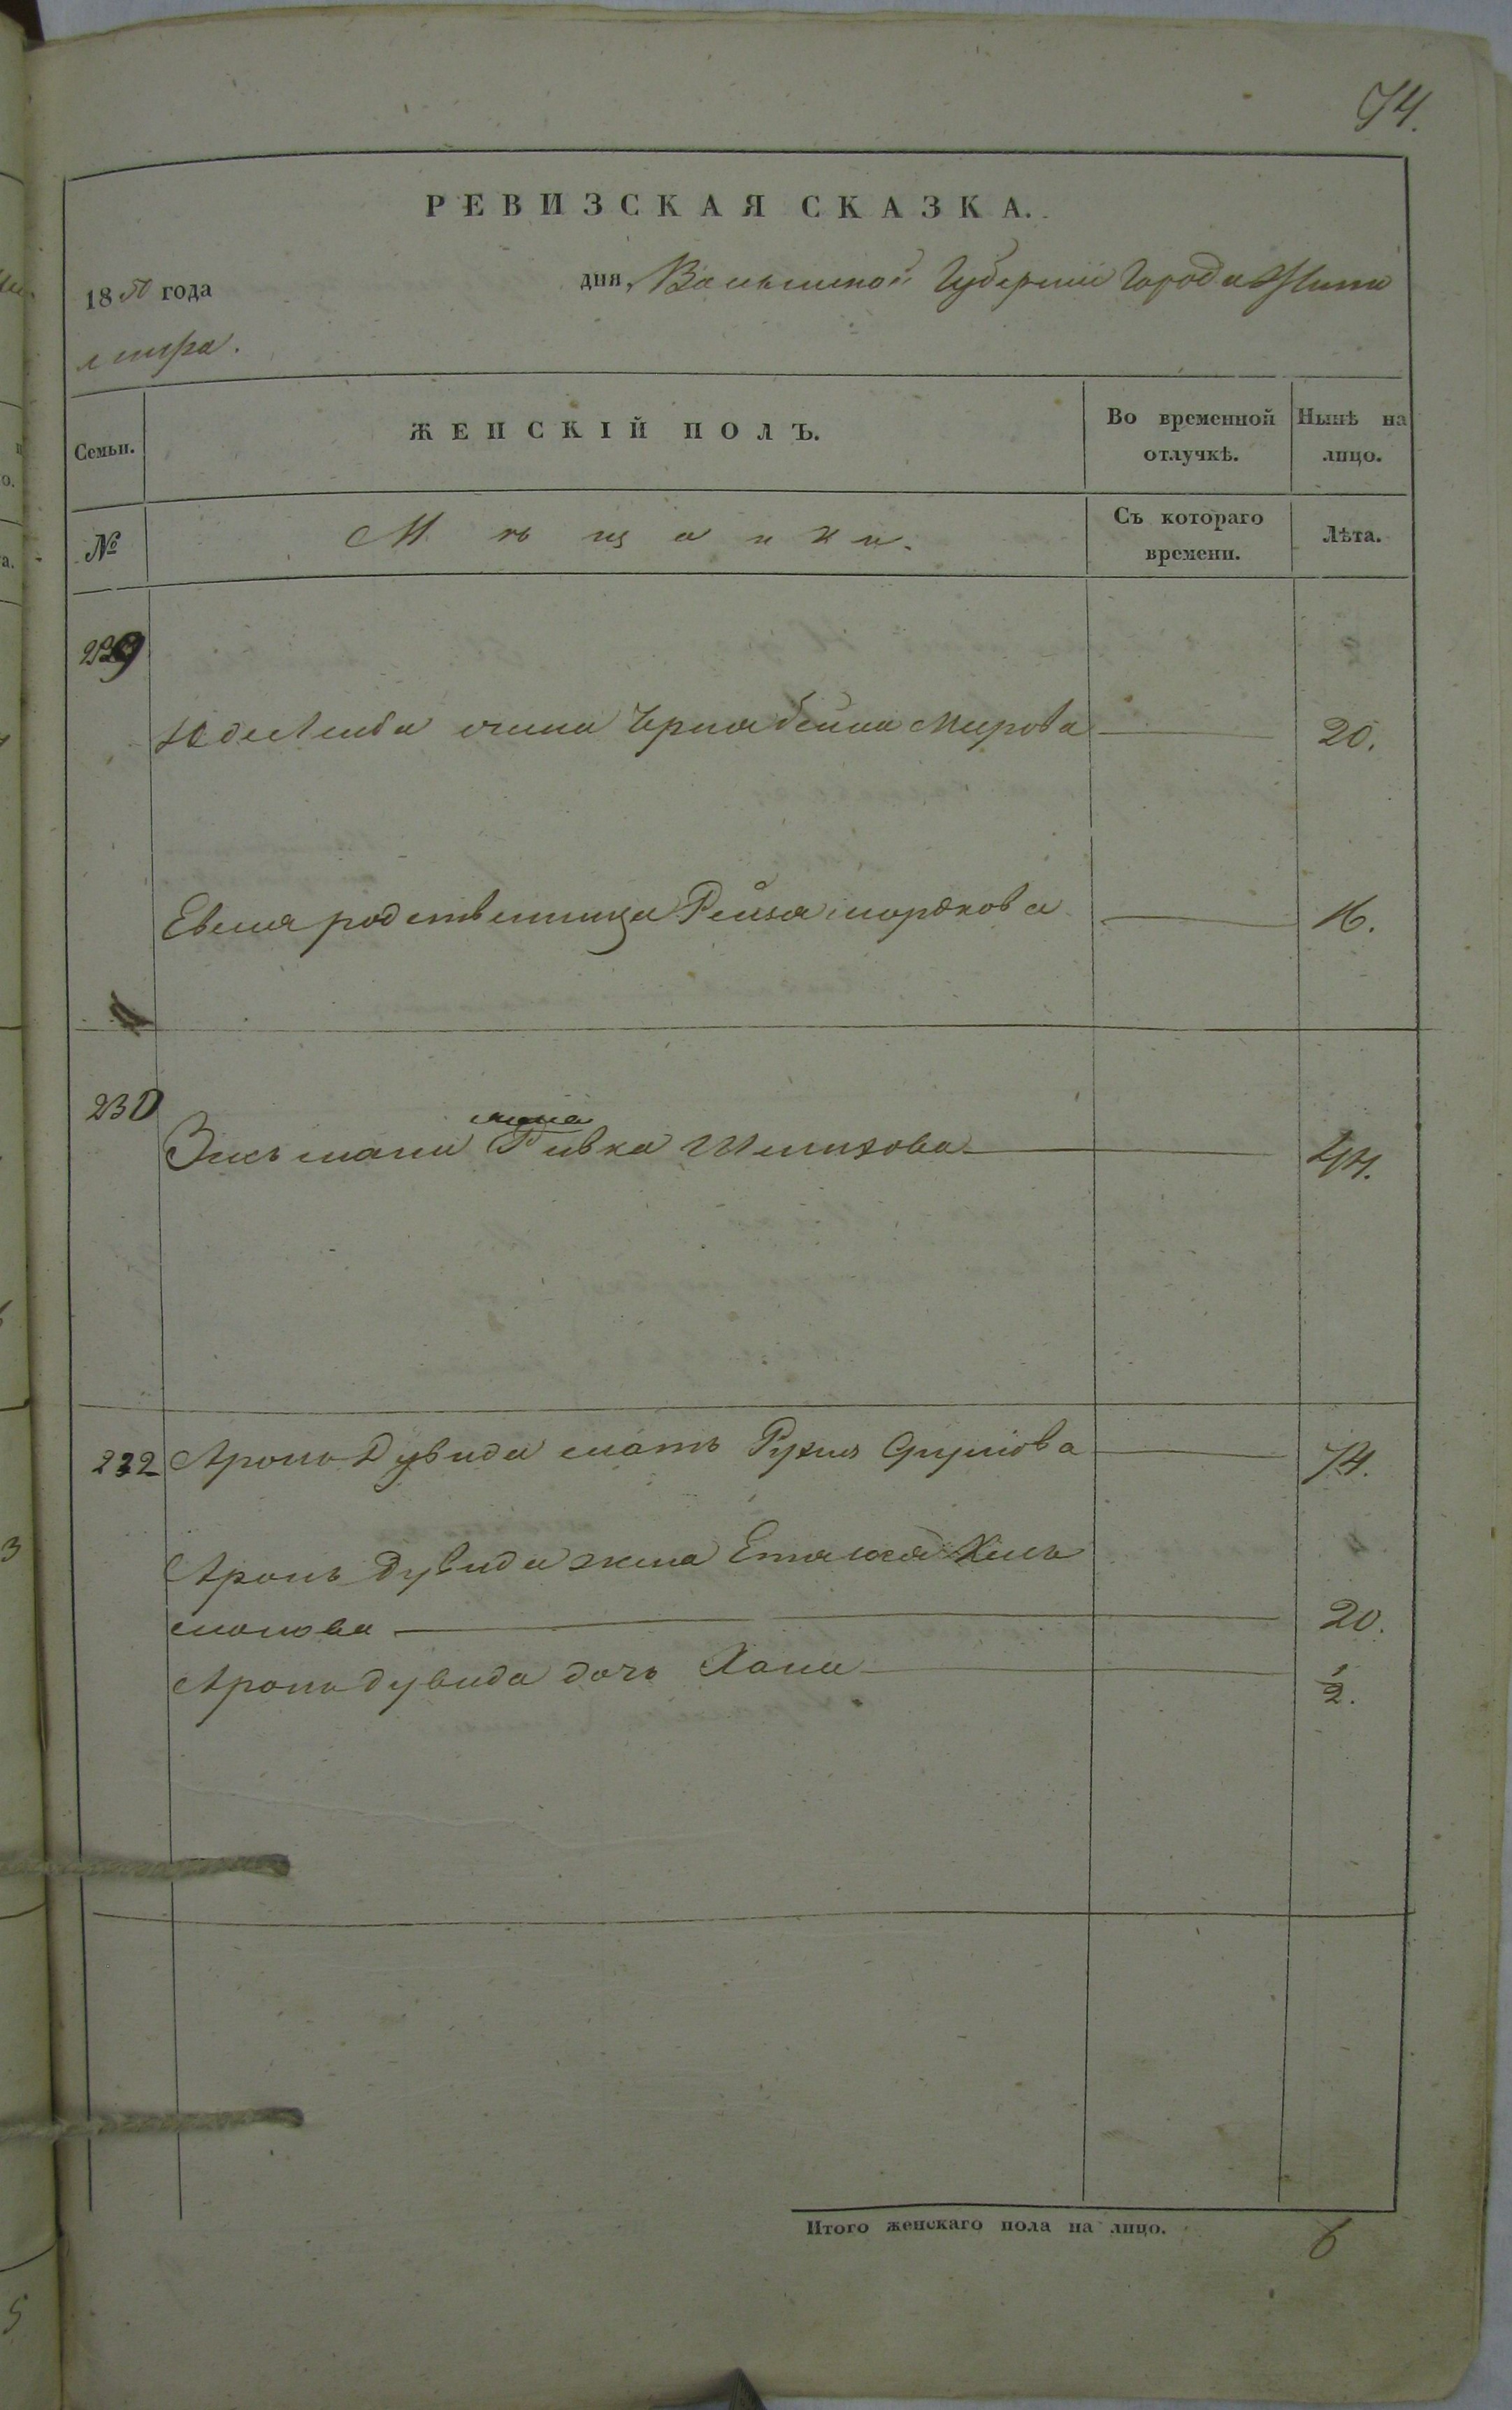 74.
РЕВИЗСКАЯ СКАЗКА.
1850 года дня, Волынской Губернии Города Жито
мира.
Семьи.
ЖЕНСКІЙ ПОЛЪ.
Во временной отлучкѣ.
Нынѣ на лицо.
№
Мѣщанки.
Съ котораго времени.
Лѣта.
229
жена Черня бейла Мирова 20.
родственница Рейзя моркова 16.
230
жена
Ривка 44.
232 Аронъ Дувида мать Рухля 74.
Аронъ Дувида жена Хель
монова 20.
Аронъ дувида дочь Хана 1/2.
Итого женскаго пола на лицо. 6